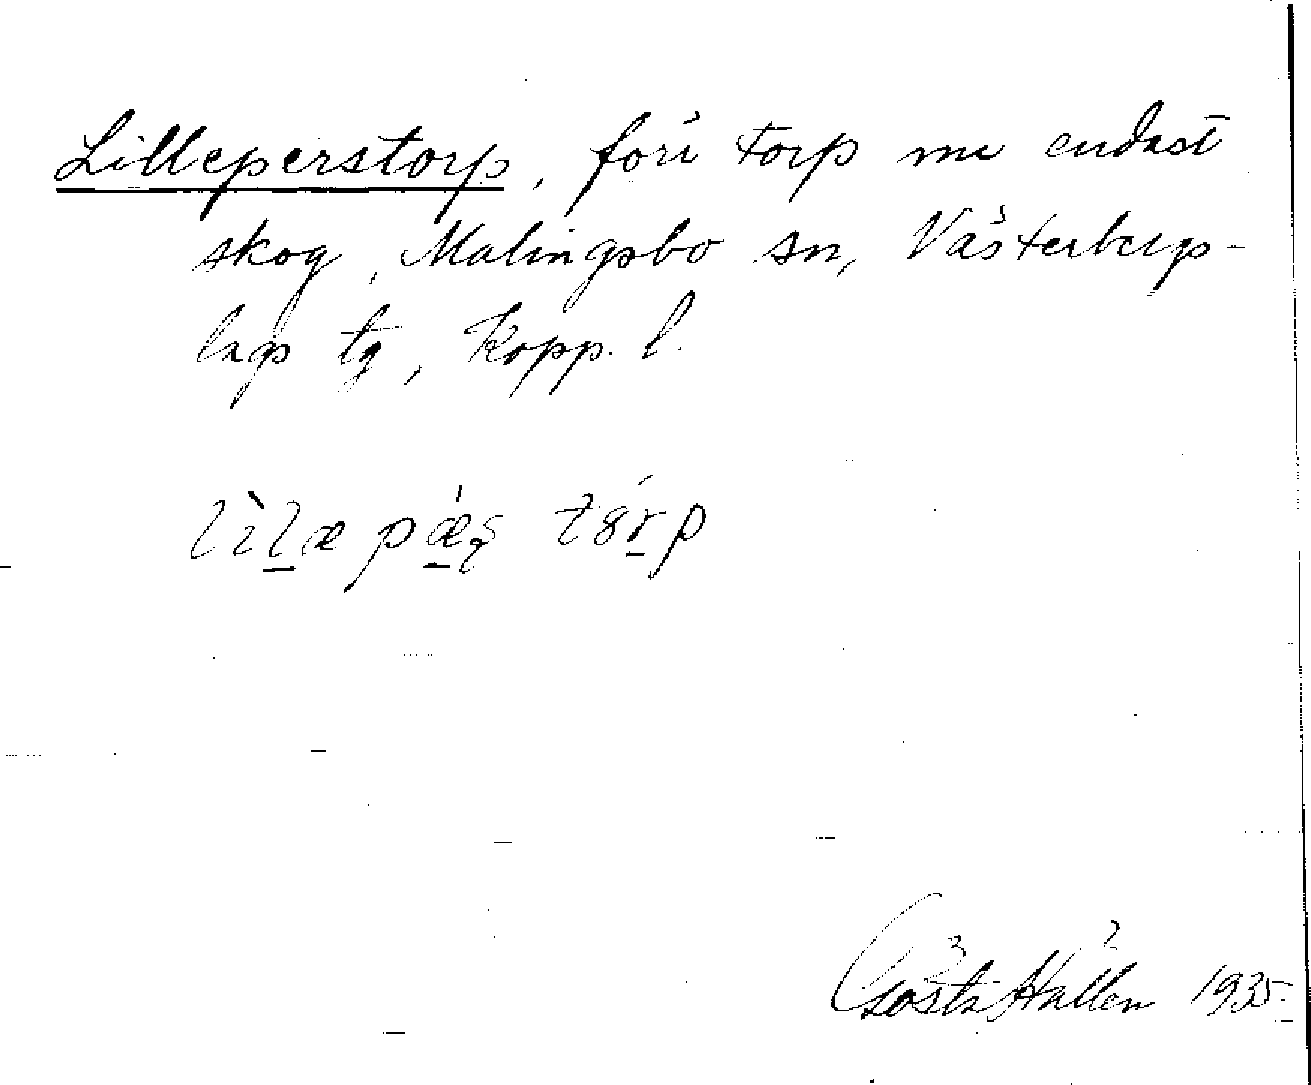 Lilleperstorp, förr torp nu endast
skog, Malingsbo sn, Västerbergs-
lags tg, Kopp. l.
Gösta Hallén 1935.